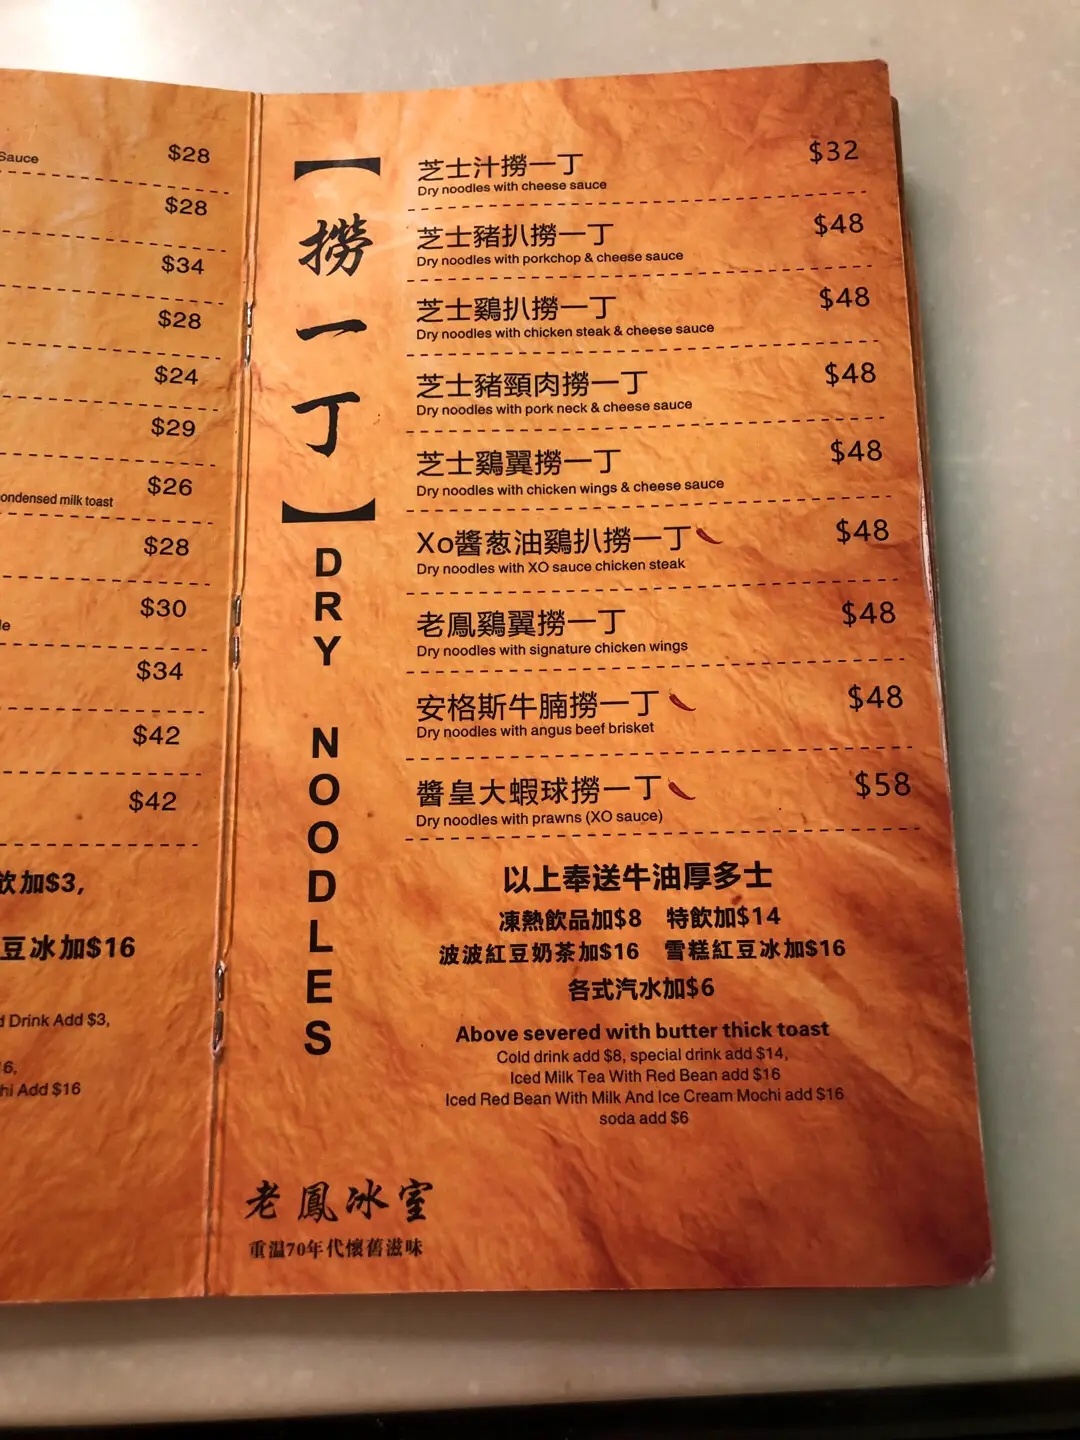 Sauce
$28
$28
$34
$28
$24
$29
$26
ondensed milk toast
$28
$30
le
$34
$42
$42
飲加$3,
豆冰加$16
d Drink Add $3,
16,
hi Add $16
【撈一丁】
DRY NOODLES
芝士汁撈一丁 $32
Dry noodles with cheese sauce
芝士豬扒撈一丁 $48
Dry noodles with porkchop & cheese sauce
芝士鷄扒撈一丁 $48
Dry noodles with chicken steak & cheese sauce
芝士豬頸肉撈一丁 $48
Dry noodles with pork neck & cheese sauce
芝士鷄翼撈一丁 $48
Dry noodles with chicken wings & cheese sauce
Xo醬葱油鷄扒撈一丁 $48
Dry noodles with XO sauce chicken steak
老鳳鷄翼撈一丁 $48
Dry noodles with signature chicken wings
安格斯牛腩撈一丁 $48
Dry noodles with angus beef brisket
醬皇大蝦球撈一丁 $58
Dry noodles with prawns (XO sauce)
以上奉送牛油厚多士
凍熱飲品加$8 特飲加$14
波波紅豆奶茶加$16 雪糕紅豆冰加$16
各式汽水加$6
Above severed with butter thick toast
Cold drink add $8, special drink add $14,
Iced Milk Tea With Red Bean add $16
Iced Red Bean With Milk And Ice Cream Mochi add $16
soda add $6
老鳳冰室
重温70年代懷舊滋味